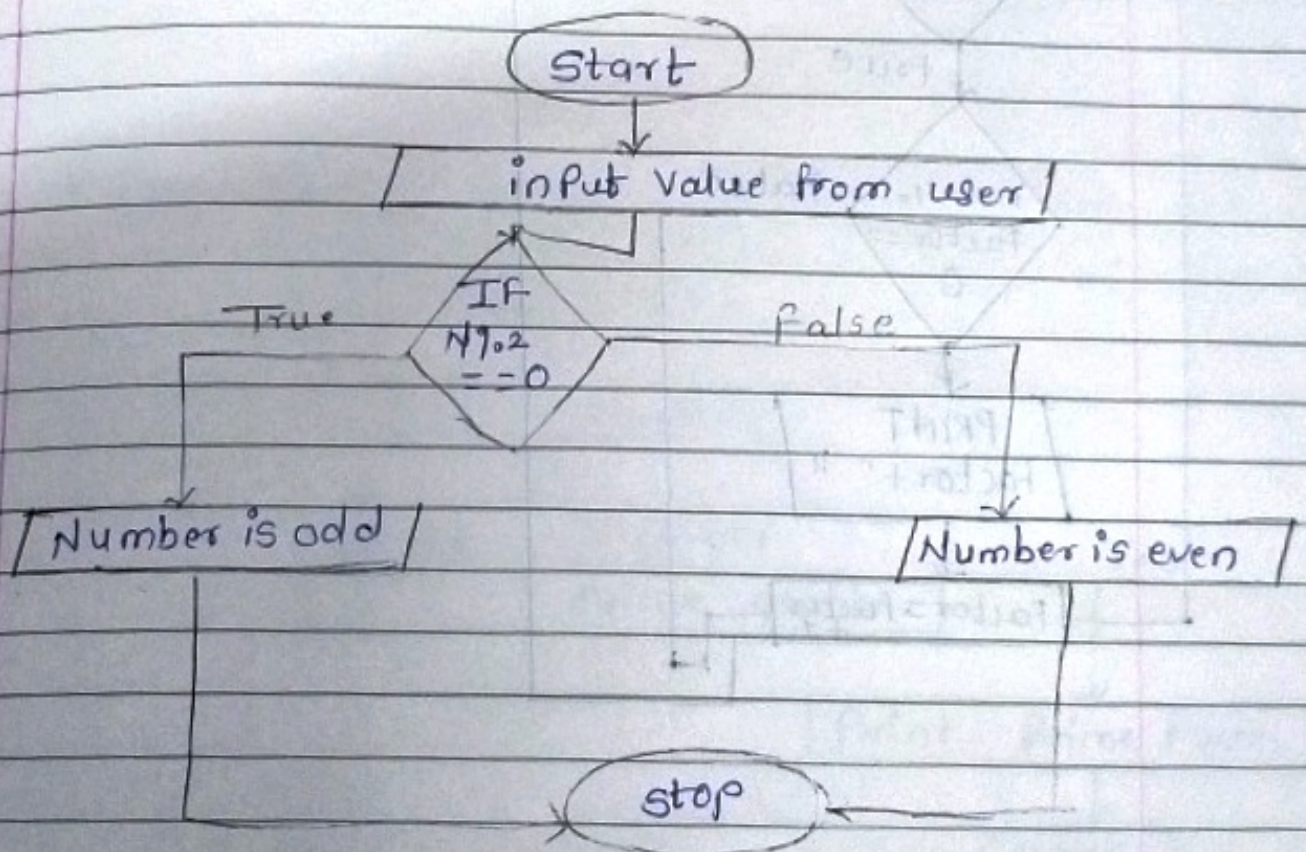 Start
input value from user
IF
N%2
==0
True
False
Number is odd
Number is even
stop